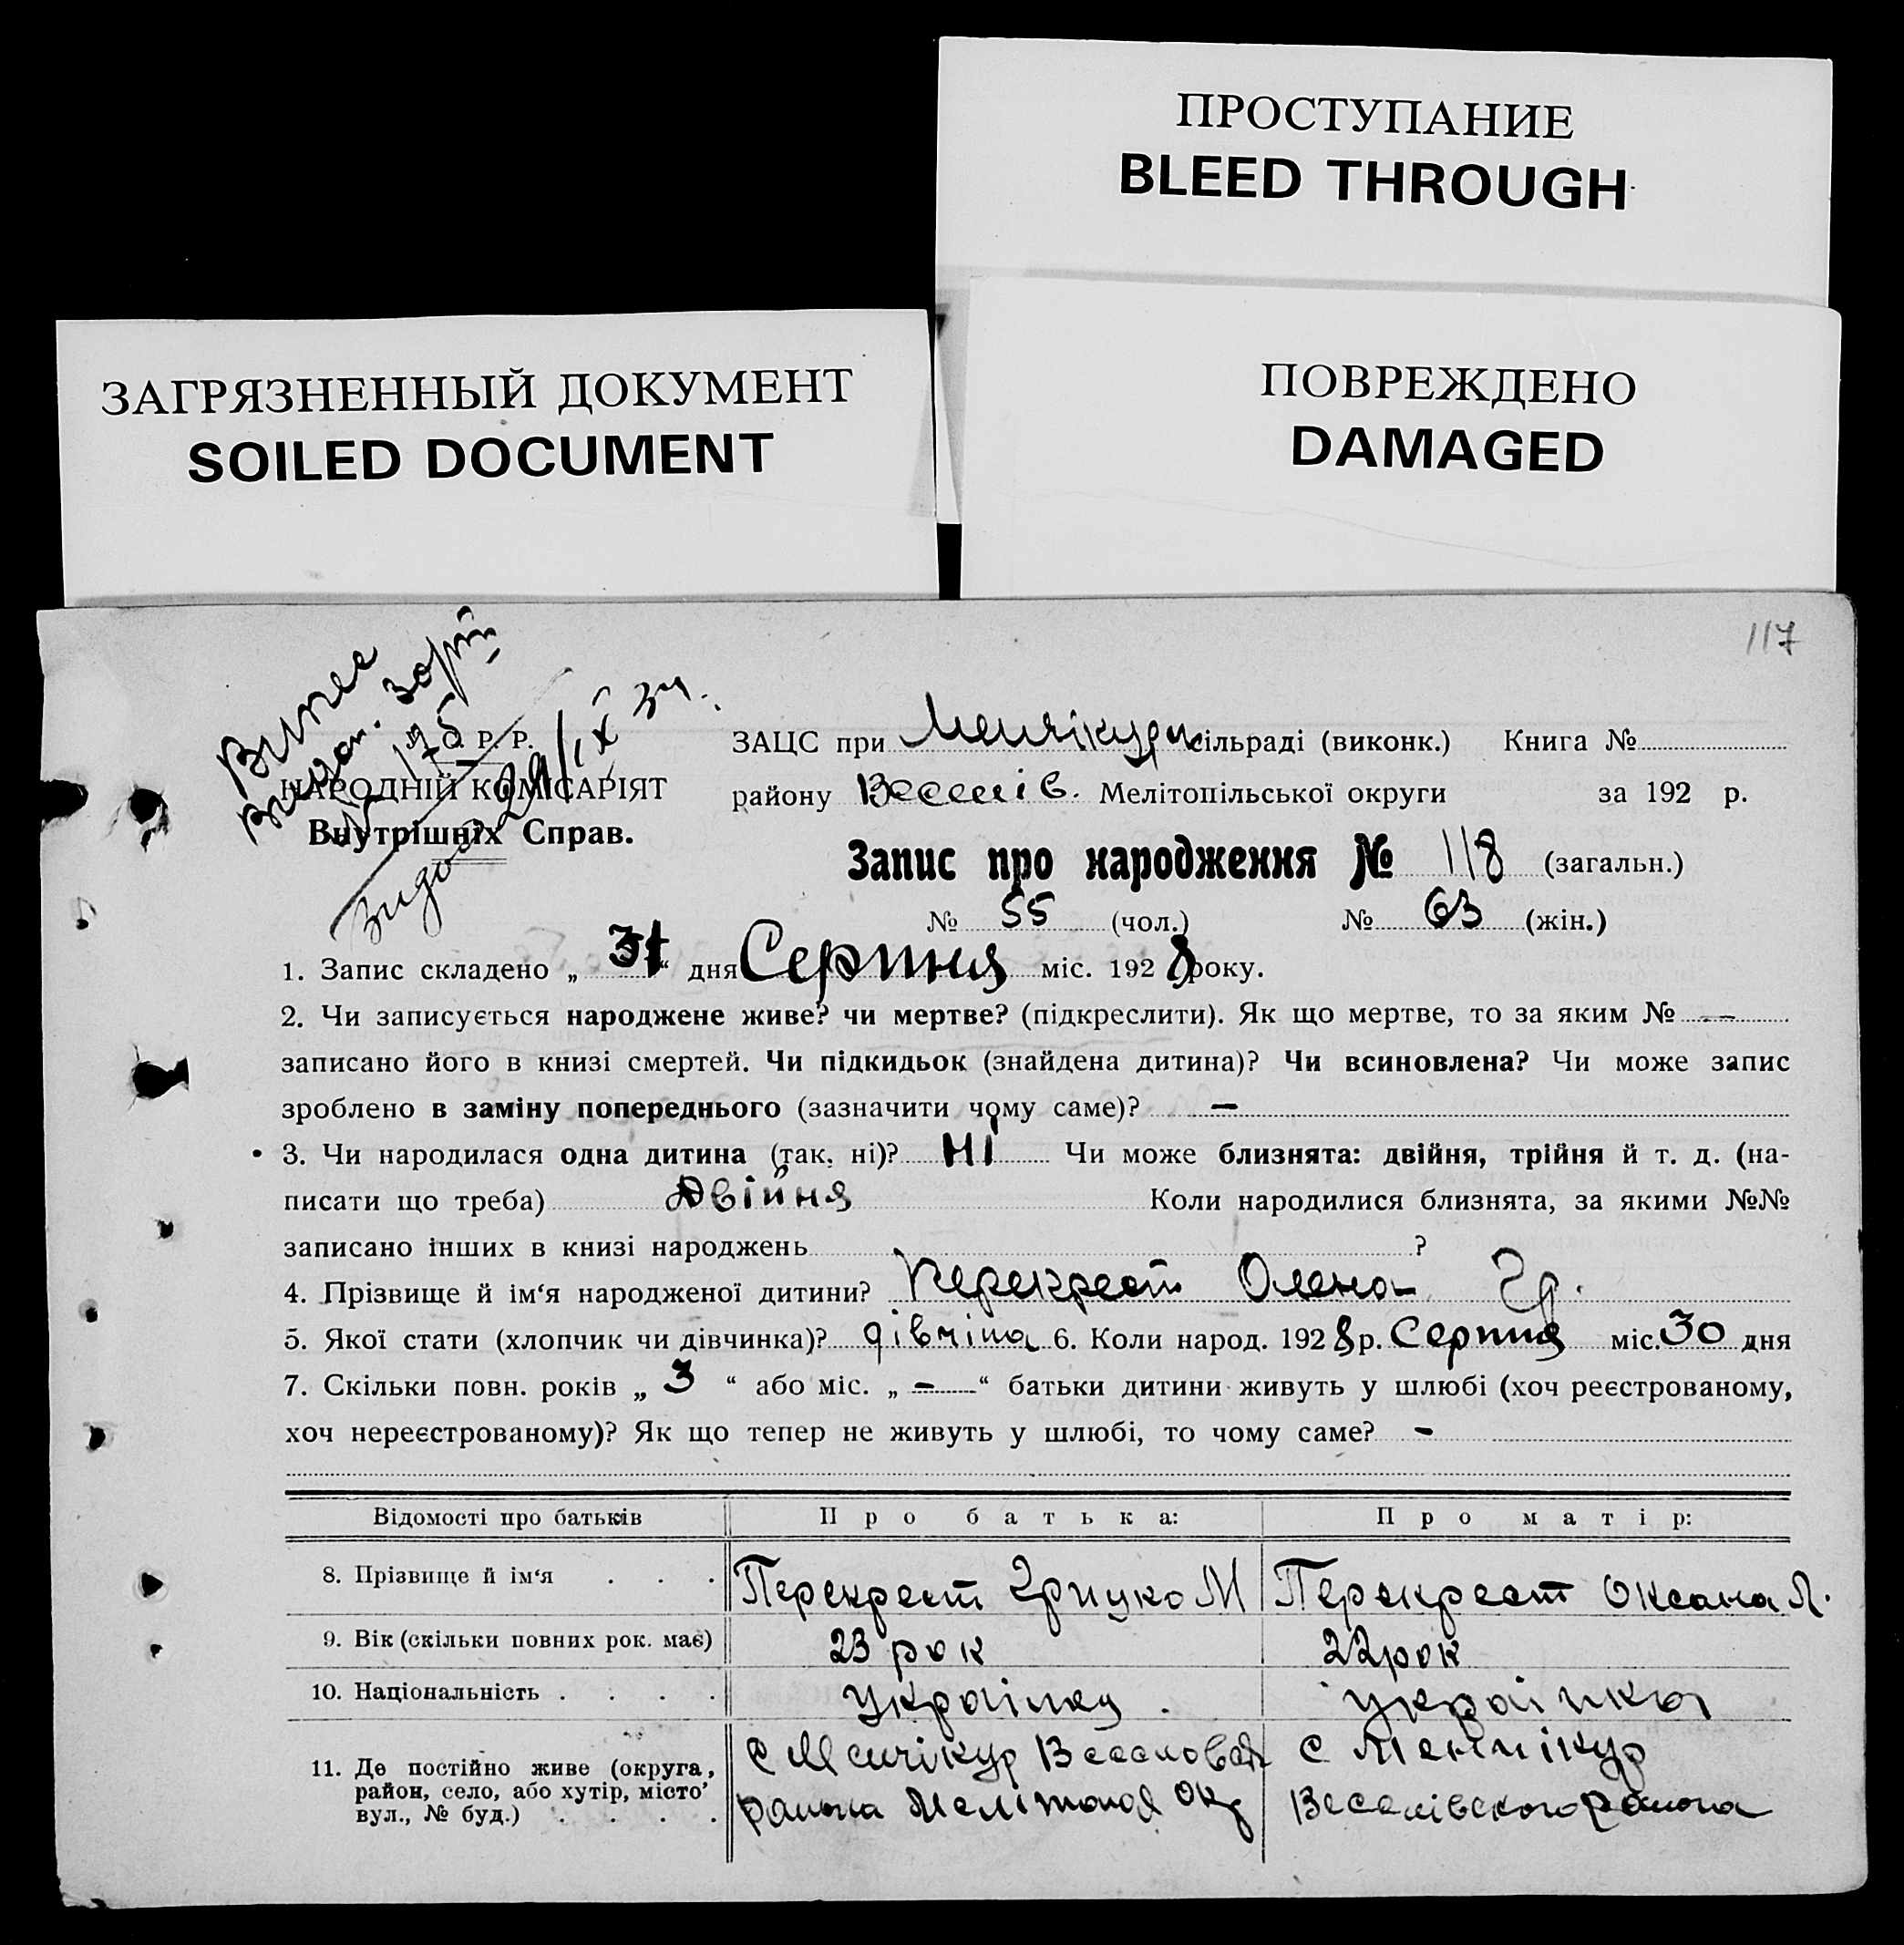 ПРОСТУПАНИЕ
BLEED THROUGH
ЗАГРЯЗНЕННЫЙ ДОКУМЕНТ
SOILED DOCUMENT
ПОВРЕЖДЕНО
DAMAGED
117
У. С. Р. Р.
НАРОДНІЙ КОМІСАРІЯТ
Внутрішніх Справ.
175
ЗАЦС при Менчікури сільраді (виконк.) Книга №
району Веселів. Мелітопільської округи за 192 р.
Запис про народження № 118 (загальн.)
№ 55 (чол.) № 63 (жін.)
1. Запис складено „ 31 “ дня Серпня міс. 1928 року.
2. Чи записується народжене живе? чи мертве? (підкреслити). Як що мертве, то за яким № —
записано його в книзі смертей. Чи підкидьок (знайдена дитина)? Чи всиновлена? Чи може запис
зроблено в заміну попереднього (зазначити чому саме)? —
3. Чи народилася одна дитина (так, ні)? Ні Чи може близнята: двійня, трійня й т. д. (на-
писати що треба) Двійня Коли народилися близнята, за якими №№
записано інших в книзі народжень ?
4. Прізвище й ім‘я народженої дитини? Перекрест Олена Гр.
5. Якої стати (хлопчик чи дівчинка)? дівчіна 6. Коли народ. 1928 р. Серпня міс. 30 дня
7. Скільки повн. років „ 3 “ або міс. „ — “ батьки дитини живуть у шлюбі (хоч реєстрованому,
хоч нереєстрованому)? Як що тепер не живуть у шлюбі, то чому саме? —
Відомості про батьків Про батька: Про матір:
8. Прізвище й ім‘я . . . Перекрест Грицко М Перекрест Оксана Л.
9. Вік (скільки повних рок. має) 23 рок 22 рок
10. Національність . . . . українец українка
11. Де постійно живе (округа, район, село, або хутір, місто вул., № буд.) . . . .
с Менчікур
района Меліtопол Окр
с Менчікур
Веселівского района